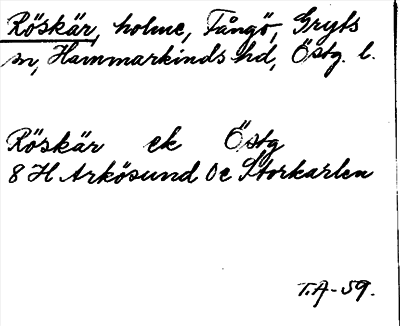 Röskär, holme, Fångö, Gryts
sn, Hammarkinds hd, Östg. l.
Röskär ek Östg
8 H Arkösund 0e Storkarlen
T.A-59.